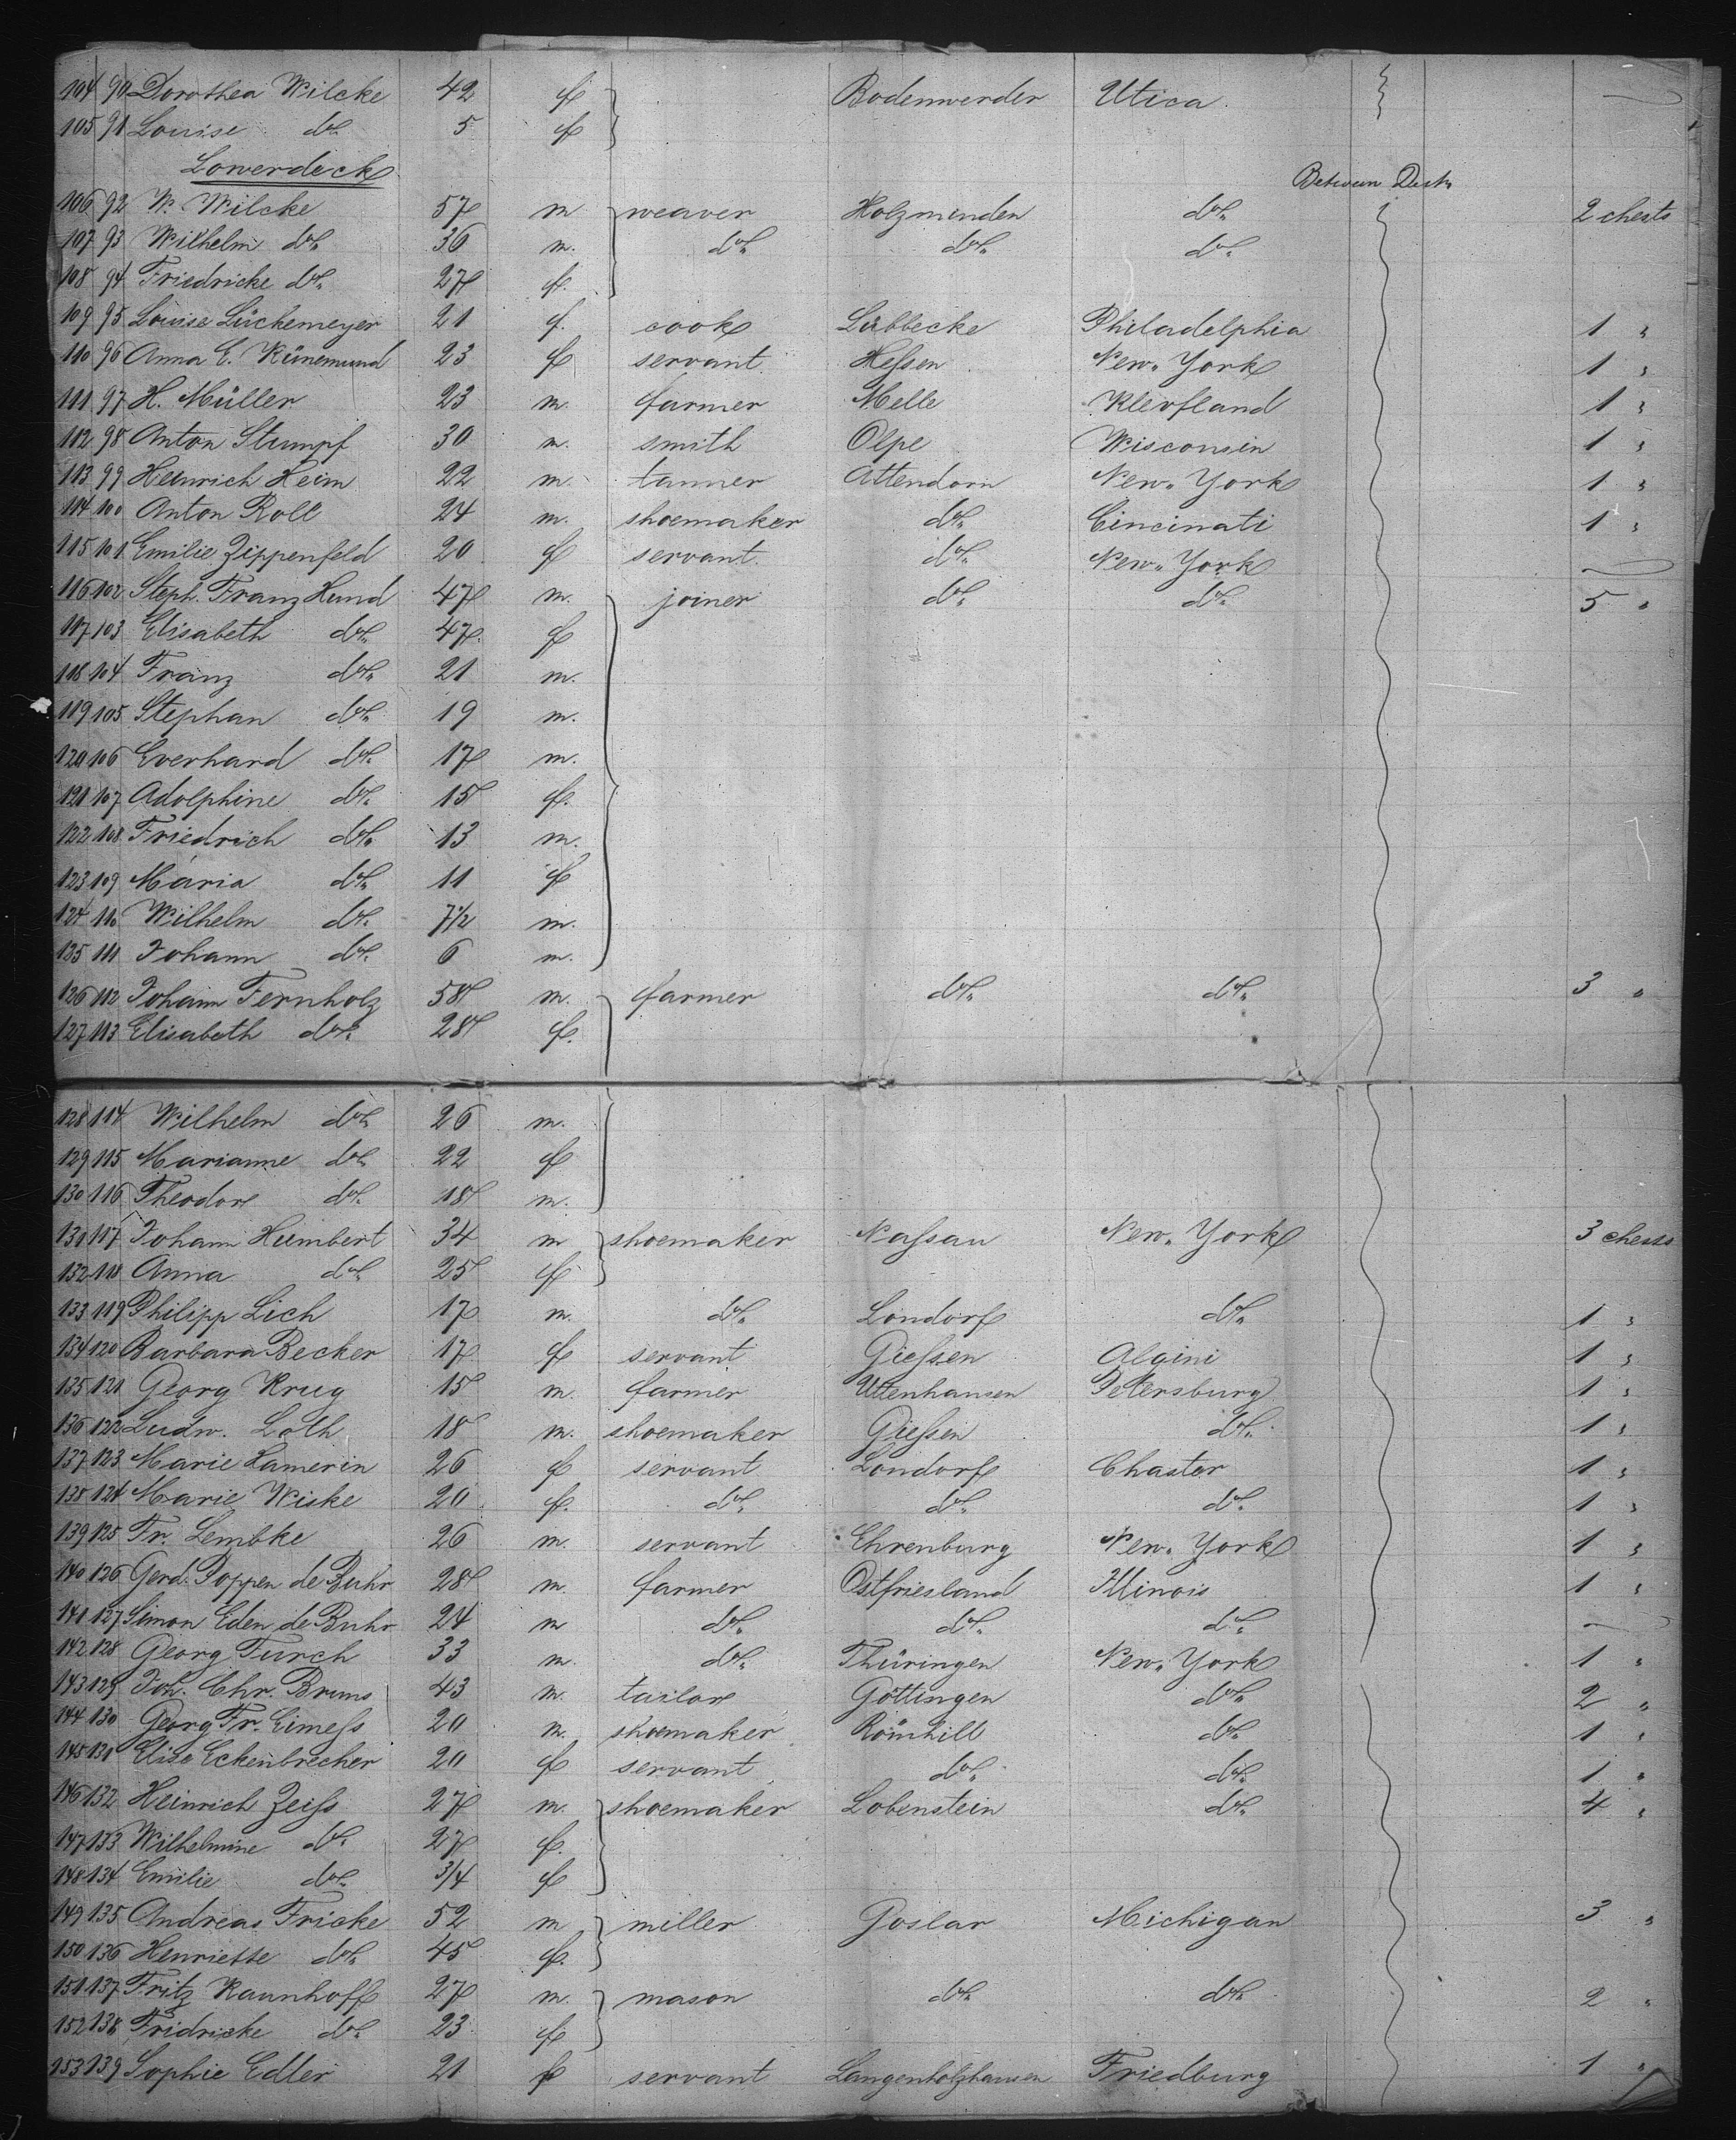 104 90 Dorothea Wilcke 42 f Bodenwerder Utica
105 91 Louise do. 5 f
Lowerdeck
Between Decks
106 92 W. Wilcke 57 m weaver Holzminden do. 2 chests
107 93 Wilhelm do. 36 m. do. do. do.
108 94 Friedricke do. 27 f.
109 95 Louise Lückemeyer 21 f. cook Lübbecke Philadelphia 1 "
110 96 Anna E. Künemund 23 f servant Heſsen New-York 1 "
111 97 H. Müller 23 m. farmer Melle Klevfland 1 "
112 98 Anton Stumpf 30 m. smith Olpe Wisconsin 1 "
113 99 Heinrich Heim 22 m. tanner Attendorn New-York 1 "
114 100 Anton Roll 24 m. shoemaker do. Cincinati 1 "
115 101 Emilie Zippenfeld 20 f servant do. New-York —
116 102 Steph. Franz Hund 47 m. joiner do. do. 5 "
117 103 Elisabeth do. 47 f
118 104 Franz do. 21 m.
119 105 Stephan do. 19 m.
120 106 Everhard do. 17 m.
121 107 Adolphine do. 15 f.
122 108 Friedrich do. 13 m.
123 109 Maria do. 11 f
124 110 Wilhelm do. 7 1/2 m.
125 111 Johann do. 6 m.
126 112 Johann Fernholz 58 m. farmer do. do. 3 "
127 113 Elisabeth do. 28 f.
128 114 Wilhelm do. 26 m.
129 115 Marianne do. 22 f
130 116 Theodore do. 18 m.
131 117 Johann Humbert 34 m shoemaker Naſsau New-York 3 chests
132 118 Anna do. 25 f
133 119 Philipp Lich 17 m. do. Londorf do. 1 "
134 120 Barbara Becker 17 f servant Gieſsen Algini 1 "
135 121 Georg Krug 15 m. farmer Uttenhausen Petersburg 1 "
136 122 Ludw. Loth 18 m. shoemaker Gieſsen do. 1 "
137 123 Marie Lamerin 26 f servant Londorf Chaster 1 "
138 124 Marie Wiske 20 f. do. do. do. 1 "
139 125 Fr. Lembke 26 m. servant Ehrenburg New-York 1 "
140 126 Gerd. Poppen de Buhr 28 m. farmer Ostfriesland Illinois 1 "
141 127 Simon Eden de Buhr 24 m do. do. do. —
142 128 Georg Furch 33 m. do. Thüringen New-York 1 "
143 129 Joh. Chr. Bruns 43 m. tailore Göttingen do. 2 "
144 130 Georg Fr. Eimeſs 20 m. shoemaker Römhill do. 1 "
145 131 Elise Eckenbrecher 20 f servant do. do. 1 "
146 132 Heinrich Zeiſs 27 m. shoemaker Lobenstein do. 4 "
147 133 Wilhelmine do. 27 f.
148 134 Emilie do. 3/4 f
149 135 Andreas Fricke 52 m miller Goslar Michigan 3 "
150 136 Henriette do. 45 f.
151 137 Fritz Kaunhoff 27 m. mason do. do. 2 "
152 138 Fridricke do. 23 f
153 139 Sophie Edler 21 f servant Langenholzhausen Friedburg 1 "